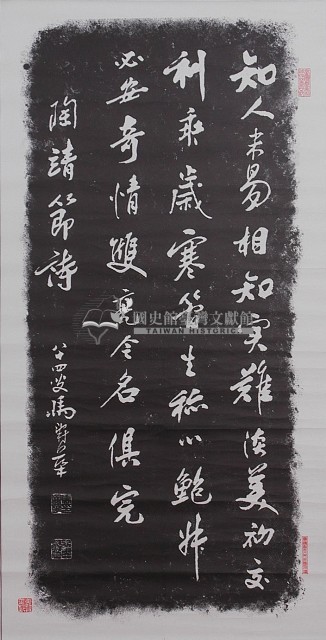 知人未易相知實難淡美初交
利乖歲寒管生稱心鮑叔
必安奇情雙亮令名俱完
陶靖節詩
八十四叟馬壽華
國史館臺灣文獻館
TAIWAN HISTORICA